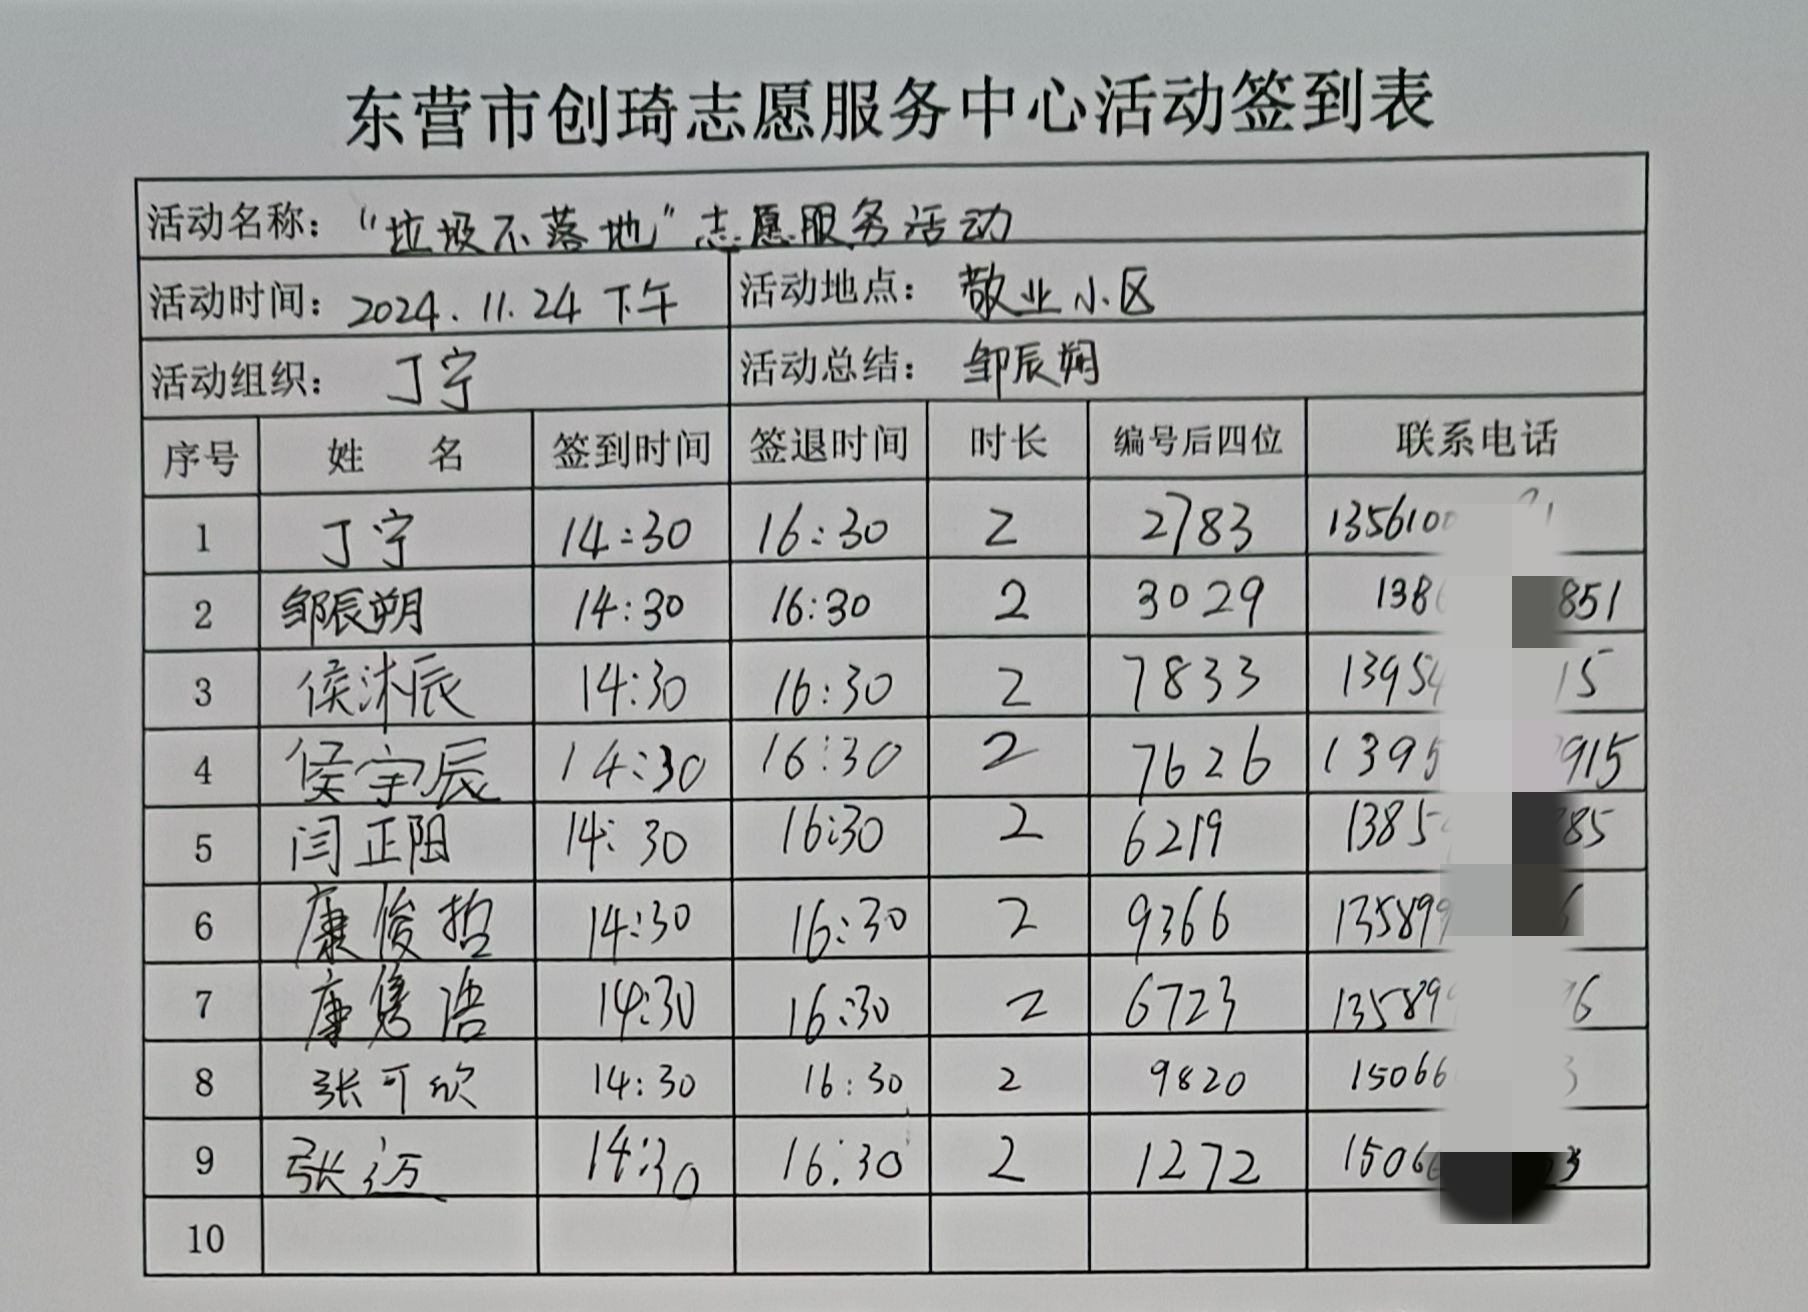 东营市创琦志愿服务中心活动签到表
活动名称：“垃圾不落地”志愿服务活动
活动时间：2024.11.24 下午 活动地点：敬业小区
活动组织：丁宁 活动总结：邹辰朔
序号 姓 名 签到时间 签退时间 时长 编号后四位 联系电话
1 丁宁 14:30 16:30 2 2783 135610
2 邹辰朔 14:30 16:30 2 3029 138 851
3 侯沐辰 14:30 16:30 2 7833 1395 15
4 侯宇辰 14:30 16:30 2 7626 1395 915
5 闫正阳 14:30 16:30 2 6219 1385 85
6 康俊哲 14:30 16:30 2 9366 13589
7 康隽语 14:30 16:30 2 6723 13589 6
8 张可欣 14:30 16:30 2 9820 15066 3
9 张迈 14:30 16:30 2 1272 1506 23
10